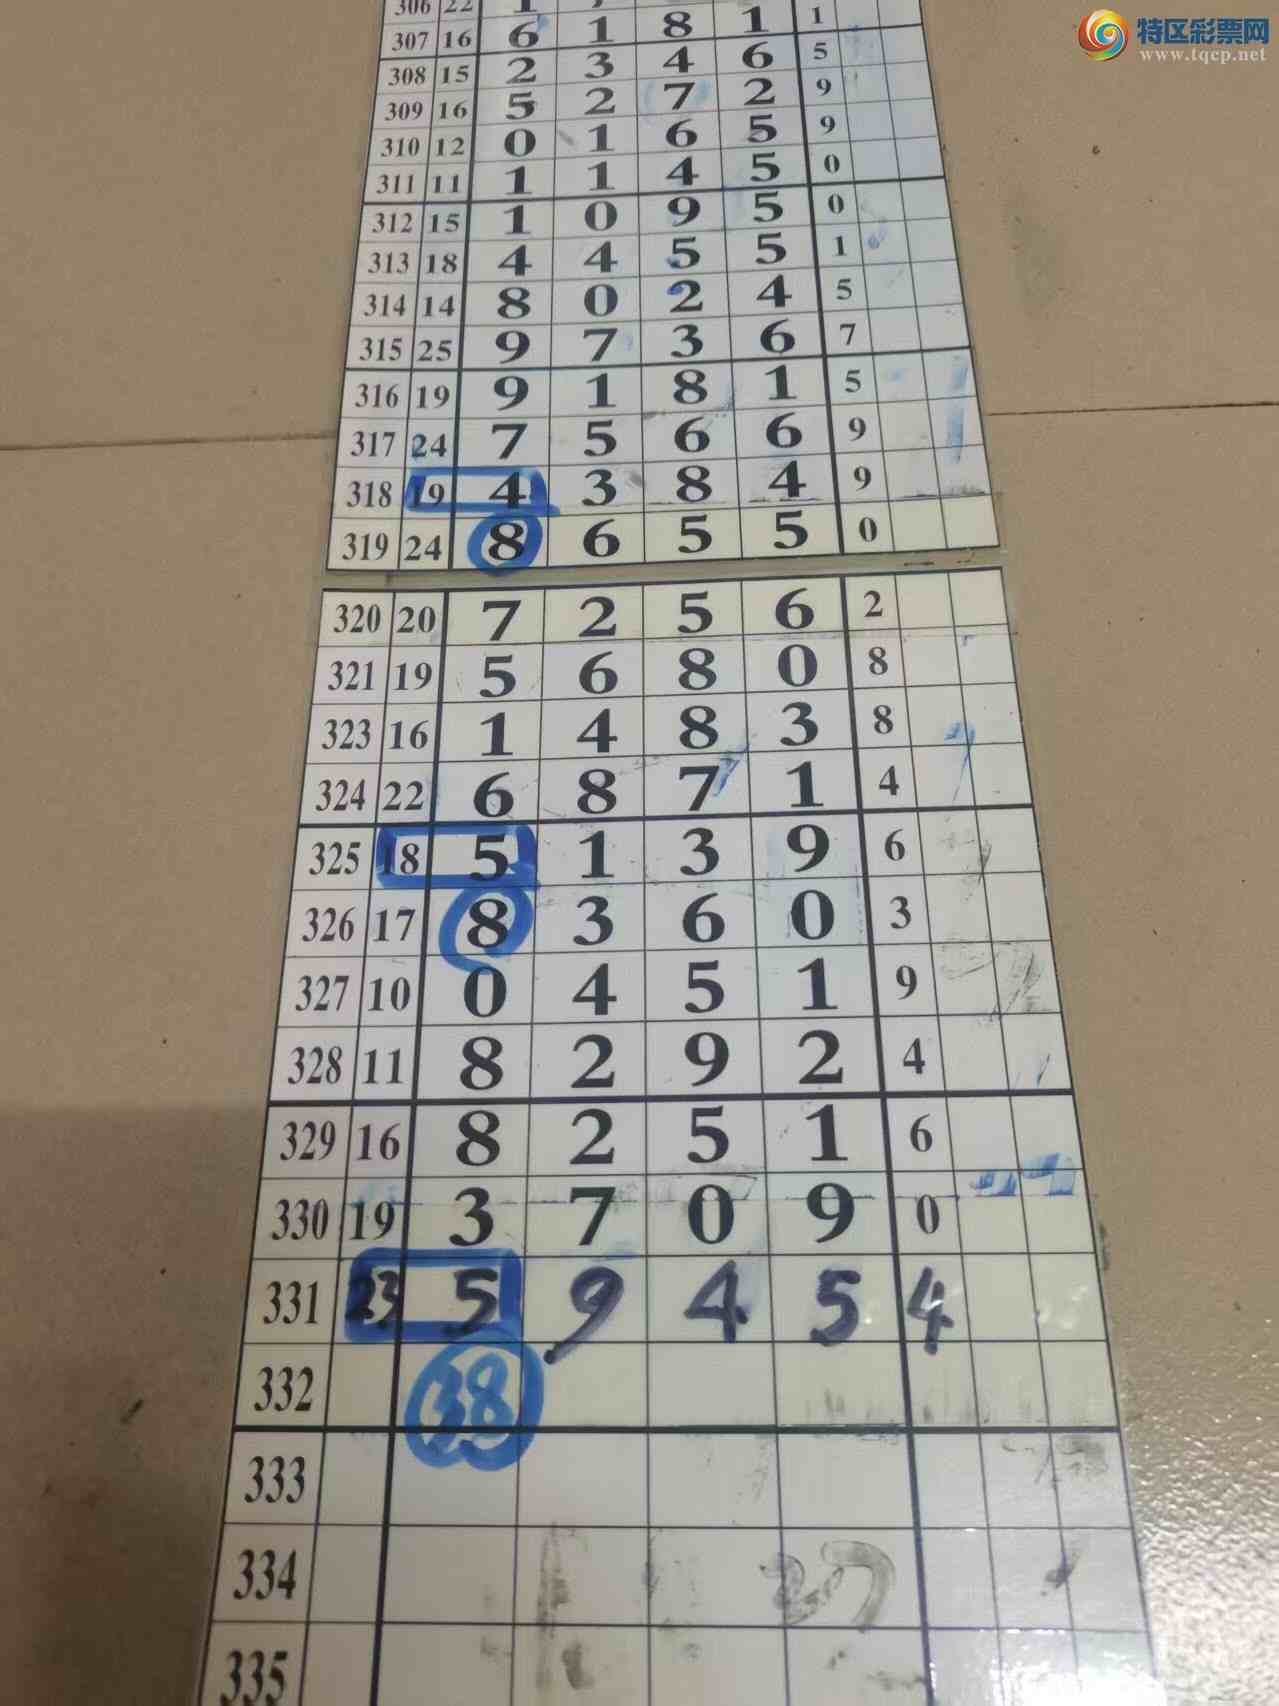 特区彩票网
www.tqcp.net
306 22 1
307 16 6 1 8 1 1
308 15 2 3 4 6 5
309 16 5 2 7 2 9
310 12 0 1 6 5 9
311 11 1 1 4 5 0
312 15 1 0 9 5 0
313 18 4 4 5 5 1
314 14 8 0 2 4 5
315 25 9 7 3 6 7
316 19 9 1 8 1 5
317 24 7 5 6 6 9
318 19 4 3 8 4 9
319 24 8 6 5 5 0
320 20 7 2 5 6 2
321 19 5 6 8 0 8
323 16 1 4 8 3 8
324 22 6 8 7 1 4
325 18 5 1 3 9 6
326 17 8 3 6 0 3
327 10 0 4 5 1 9
328 11 8 2 9 2 4
329 16 8 2 5 1 6
330 19 3 7 0 9 0
331 23 5 9 4 5 4
332 38
333
334
335